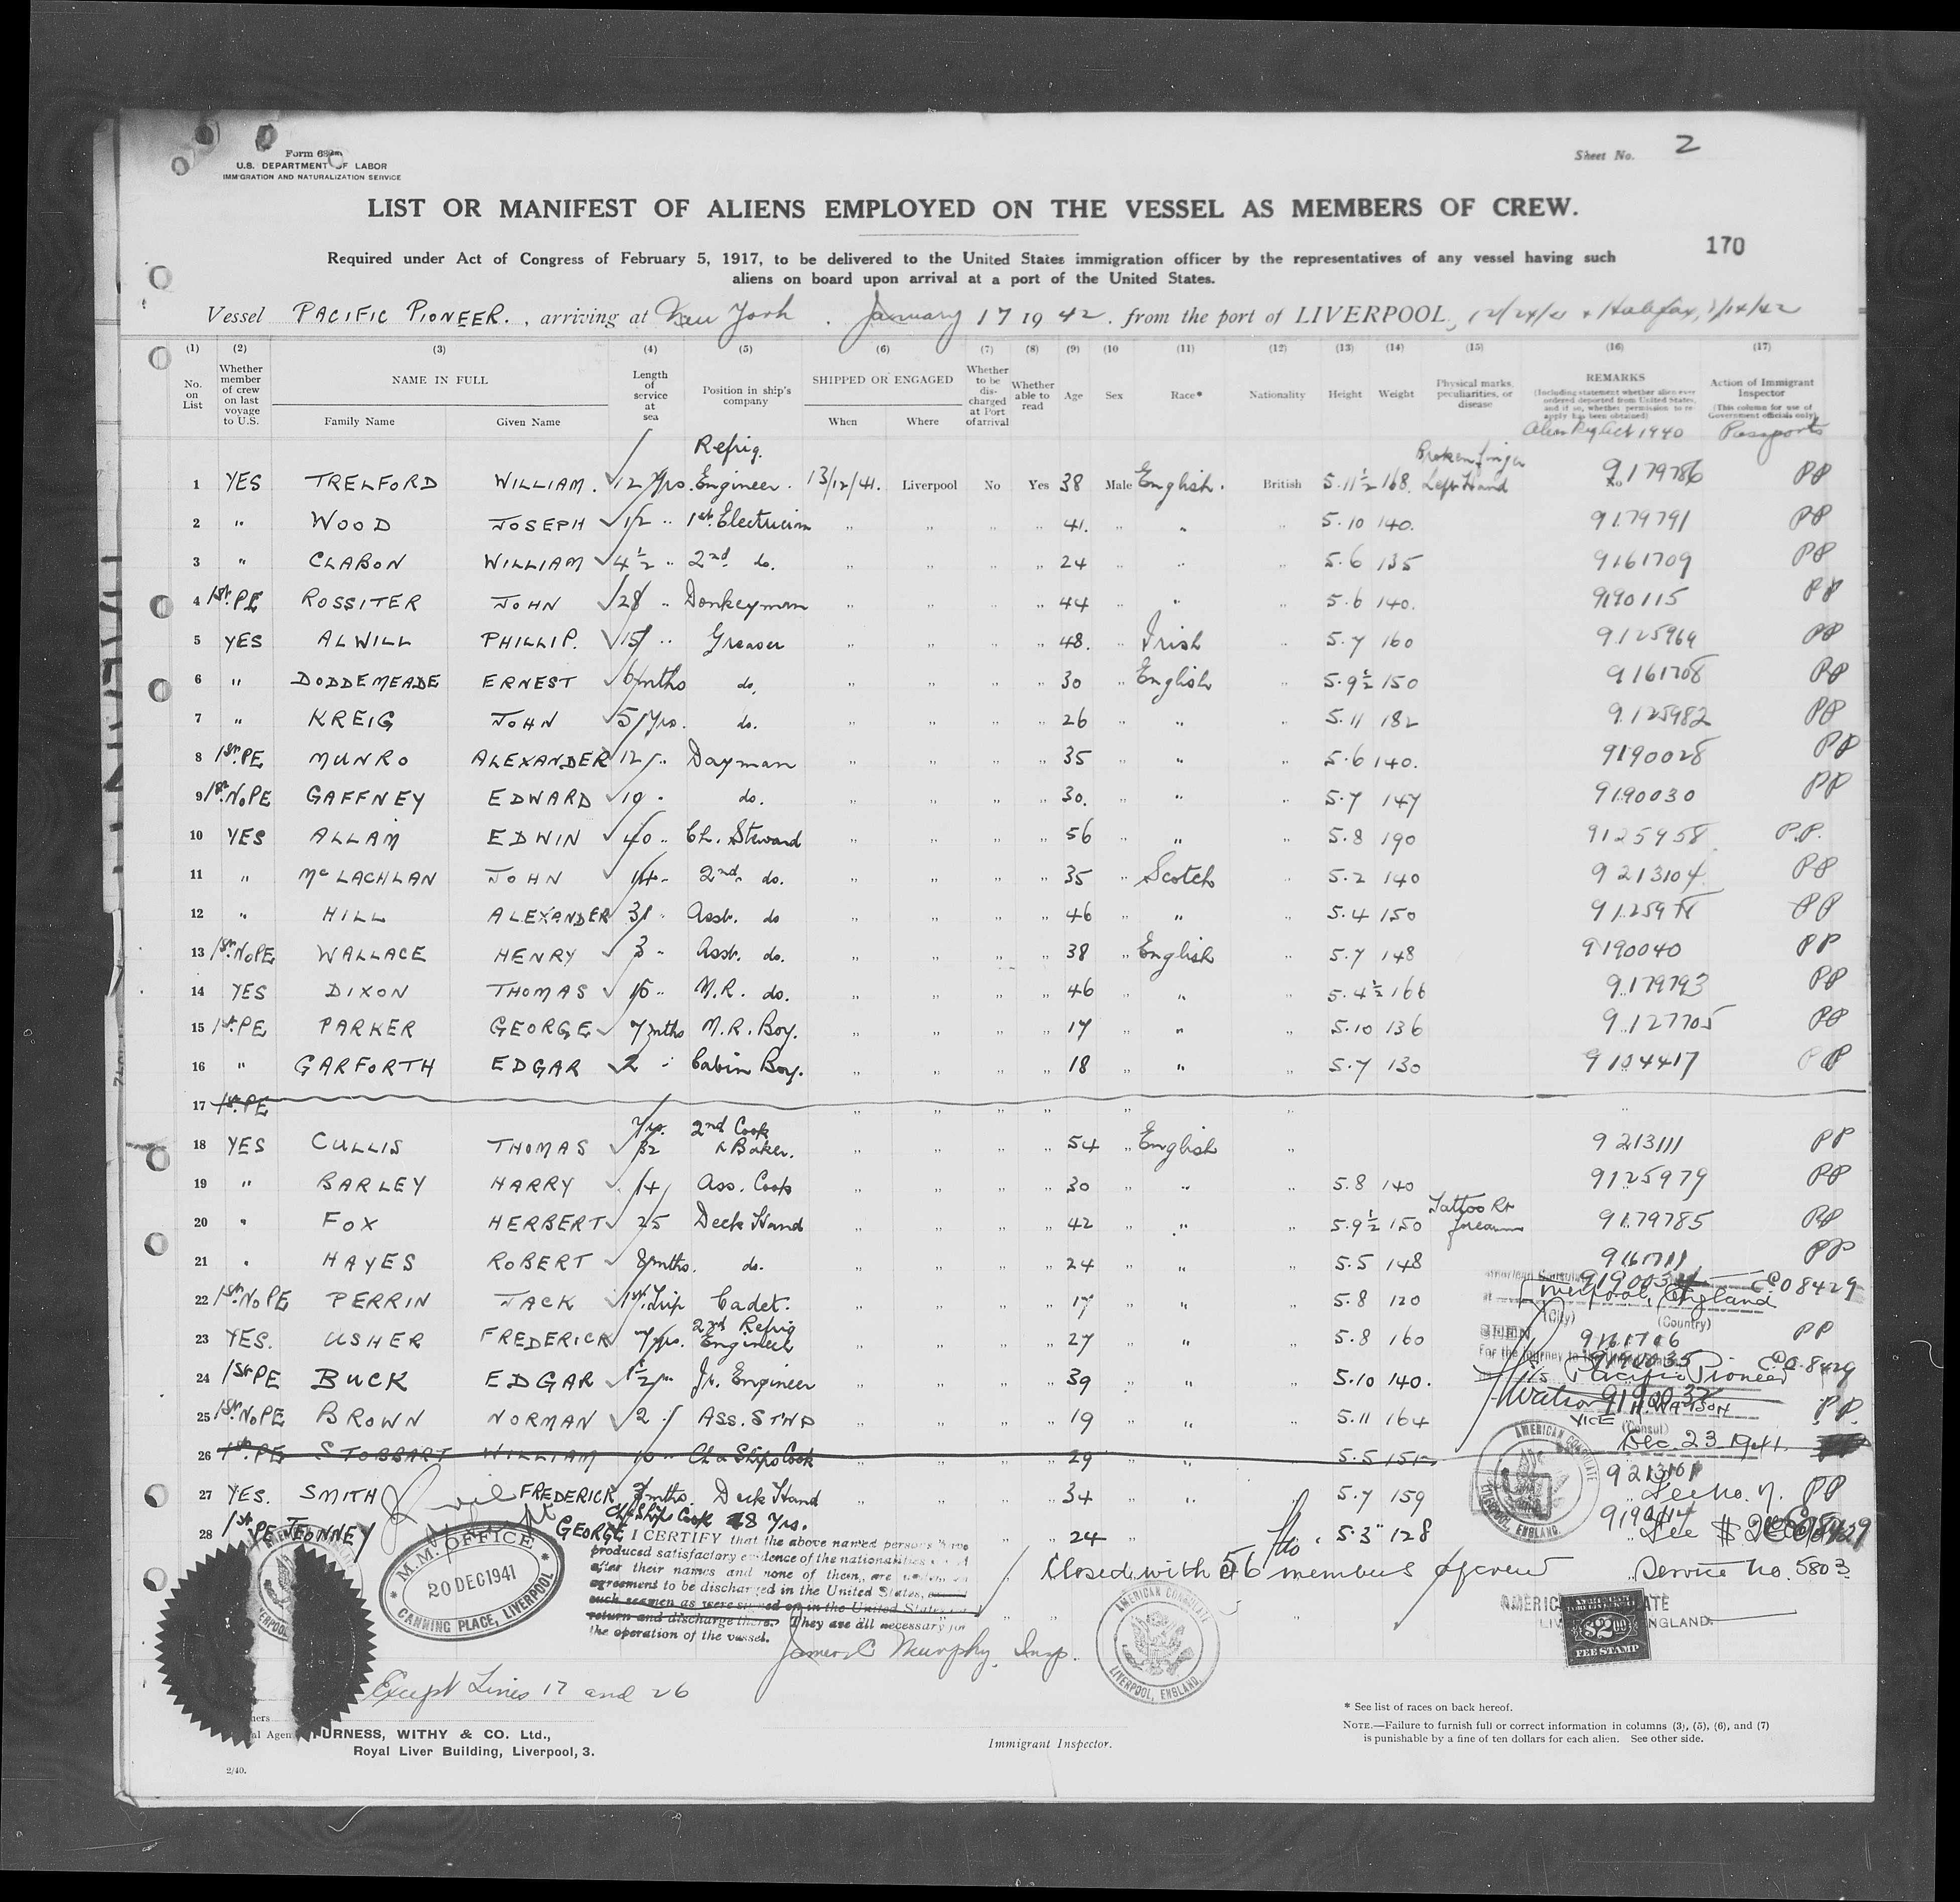 Form 689
U.S. DEPARTMENT OF LABOR
IMMIGRATION AND NATURALIZATION SERVICE
Sheet No. 2
LIST OR MANIFEST OF ALIENS EMPLOYED ON THE VESSEL AS MEMBERS OF CREW.
170
Required under Act of Congress of February 5, 1917, to be delivered to the United States immigration officer by the representatives of any vessel having such
aliens on board upon arrival at a port of the United States.
Vessel PACIFIC PIONEER. , arriving at New York . January 17 19 42 , from the port of LIVERPOOL, 12/24/41 + Halifax, 1/14/42
(1) (2) (3) (4) (5) (6) (7) (8) (9) (10 (11) (12) (13) (14) (15) (16) (17)
No. on List
Whether member of crew on last voyage to U.S.
NAME IN FULL
Family Name Given Name
Length of service at sea
Position in ship's company
SHIPPED OR ENGAGED
When Where
Whether to be discharged at Port of arrival
Whether able to read
Age Sex Race* Nationality Height Weight
Physical marks, peculiarities, or disease
REMARKS
(Including statement whether alien ever ordered deported from United States, and if so, whether permission to re apply has been obtained)
Alien Reg Act 1940
Action of Immigrant Inspector
(This column for use of Government officials only)
Passports
1 YES TRELFORD WILLIAM. 12 Yrs. Refrig. Engineer. 13/12/41. Liverpool No Yes 38 Male English. British 5.11½ 168. Broken finger Left Hand 9179786 PP
2 " WOOD JOSEPH 12 " 1st Electrician " " " " 41. " " " 5.10 140. 9179791 PP
3 " CLABON WILLIAM 4½ " 2nd do. " " " " 24 " " " 5.6 135 9161709 PP
4 1st PE ROSSITER JOHN 28 " Donkeyman " " " " 44 " " " 5.6 140. 9190115 PP
5 YES ALWILL PHILLIP. 15 " Greaser " " " " 48. " Irish " 5.7 160 9125969 PP
6 " DODDEMEADE ERNEST 6 mths do. " " " " 30 " English " 5.9½ 150 9161708 PP
7 " KREIG JOHN 5 Yrs. do. " " " " 26 " " " 5.11 182 9125982 PP
8 1st PE MUNRO ALEXANDER 12 " Dayman " " " " 35 " " " 5.6 140. 9190028 PP
9 1st NoPE GAFFNEY EDWARD 10 " do. " " " " 30. " " " 5.7 147 9190030 PP
10 YES ALLAM EDWIN 40 " Ch. Steward " " " " 56 " " " 5.8 190 9125958 P.P.
11 " McLACHLAN JOHN 14 " 2nd do. " " " " 35 " Scotch " 5.2 140 9213104 PP
12 " HILL ALEXANDER 31 " Asst. do " " " " 46 " " " 5.4 150 PP
13 1st NoPE WALLACE HENRY 3 " Asst. do. " " " " 38 " English " 5.7 148 9190040 PP
14 YES DIXON THOMAS 15 " M.R. do. " " " " 46 " " " 5.4½ 166 9179793 PP
15 1st PE PARKER GEORGE 7 mths M.R. Boy. " " " " 17 " " " 5.10 136 9127705 PP
16 " GARFORTH EDGAR 2 " Cabin Boy. " " " " 18 " " " 5.7 130 9104417 PP
17 1st PE " " " " " " "
18 YES CULLIS THOMAS Yrs. 32 2nd Cook & Baker. " " " " 54 " English " 9213111 PP
19 " BARLEY HARRY 14 Ass. Cook " " " " 30 " " " 5.8 140 9125979 PP
20 " FOX HERBERT 25 Deck Hand " " " " 42 " " " 5.9½ 150 Tattoo Rt forearm 9179785 PP
21 " HAYES ROBERT 8 mths. do. " " " " 24 " " " 5.5 148 9161711 PP
22 1st NoPE PERRIN JACK 1st Trip Cadet. " " " " 17 " " " 5.8 120 CO 8429
23 YES. USHER FREDERICK 7 Yrs. 2nd Refrig Engineer " " " " 27 " " " 5.8 160 9161706 PP
24 1st PE BUCK EDGAR Jr. Engineer " " " " 39 " " " 5.10 140. 9190035 CO 8429
25 1st NoPE BROWN NORMAN 2 " ASS. STWD " " " " 19 " " " 5.11 164 P.P.
26 1st PE STOBBART WILLIAM 10 " Ch & Ships Cook " " " " 29 " " " 5.5 151
27 YES. SMITH FREDERICK 3 mths. Deck Hand " " " " 34 " " " 5.7 159 9213101 PP
28 1st PE TENNEY GEORGE Ch & Ships Cook 8 Yrs. 24 5.3 128
American Consulate
Liverpool, England
(City) (Country)
For the journey to
M/S Pacific Pioneer
H. WATSON
VICE (Consul)
Dec. 23 1941.
See No. 7.
Service No. 5803
AMERICAN CONSULATE
LIVERPOOL, ENGLAND.
$2.00
FEE STAMP
AMERICAN CONSULATE
LIVERPOOL, ENGLAND.
M.M. OFFICE
20 DEC 1941
CANNING PLACE, LIVERPOOL
I CERTIFY that the above named persons have
produced satisfactory evidence of the nationalities
after their names and none of them, are under
agreement to be discharged in the United States,
such seamen as were signed on in the United States
return and discharge there. They are all necessary for
the operation of the vessel.
Closed with 56 members of crew
James C Murphy, Insp.
AMERICAN CONSULATE
LIVERPOOL, ENGLAND.
Except Lines 17 and 26
FURNESS, WITHY & CO. Ltd.,
Royal Liver Building, Liverpool, 3.
2/40.
Immigrant Inspector.
* See list of races on back hereof.
NOTE.—Failure to furnish full or correct information in columns (3), (5), (6), and (7)
is punishable by a fine of ten dollars for each alien. See other side.